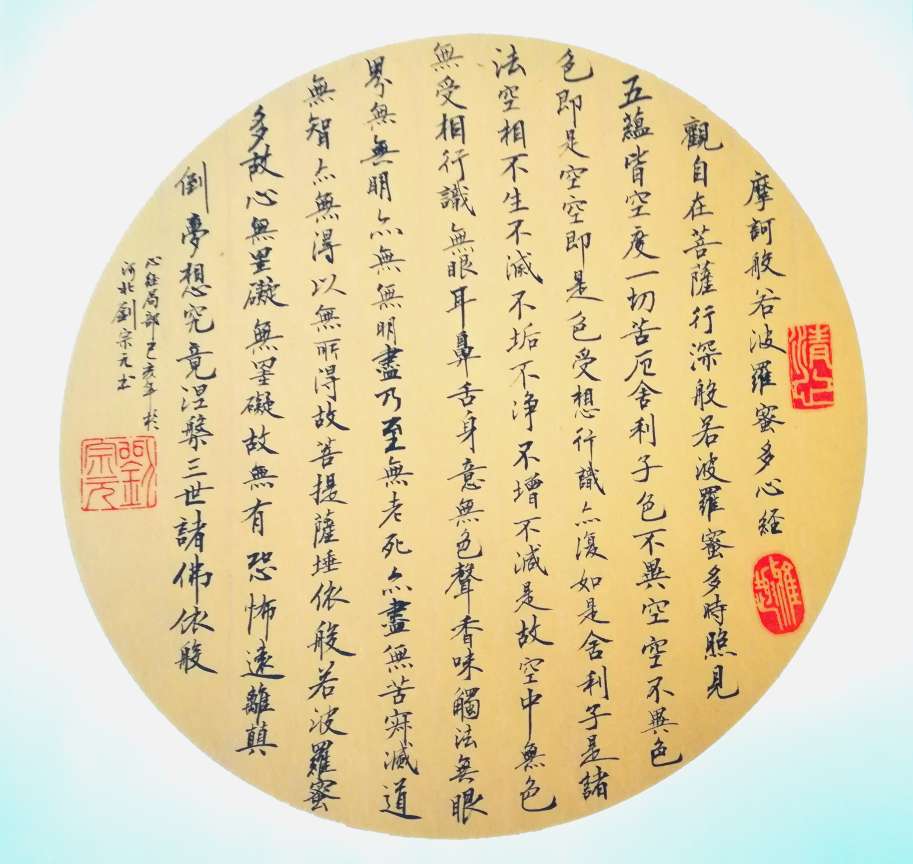 摩訶般若波羅蜜多心経
觀自在菩薩行深般若波羅蜜多時照見
五蘊皆空度一切苦厄舍利子色不異空空不異色
色即是空空即是色受想行識亦復如是舍利子是諸
法空相不生不滅不垢不净不增不減是故空中無色
無受相行識無眼耳鼻舌身意無色聲香味觸法無眼
界無無明亦無無明盡乃至無老死亦盡無苦寂滅道
無智亦無得以無所得故菩提薩埵依般若波羅蜜
多故心無罣礙無罣礙故無有恐怖遠離顛
倒夢想究竟涅槃三世諸佛依般
心経局部己亥年於
河北劉宗元书
雅趣
劉宗元